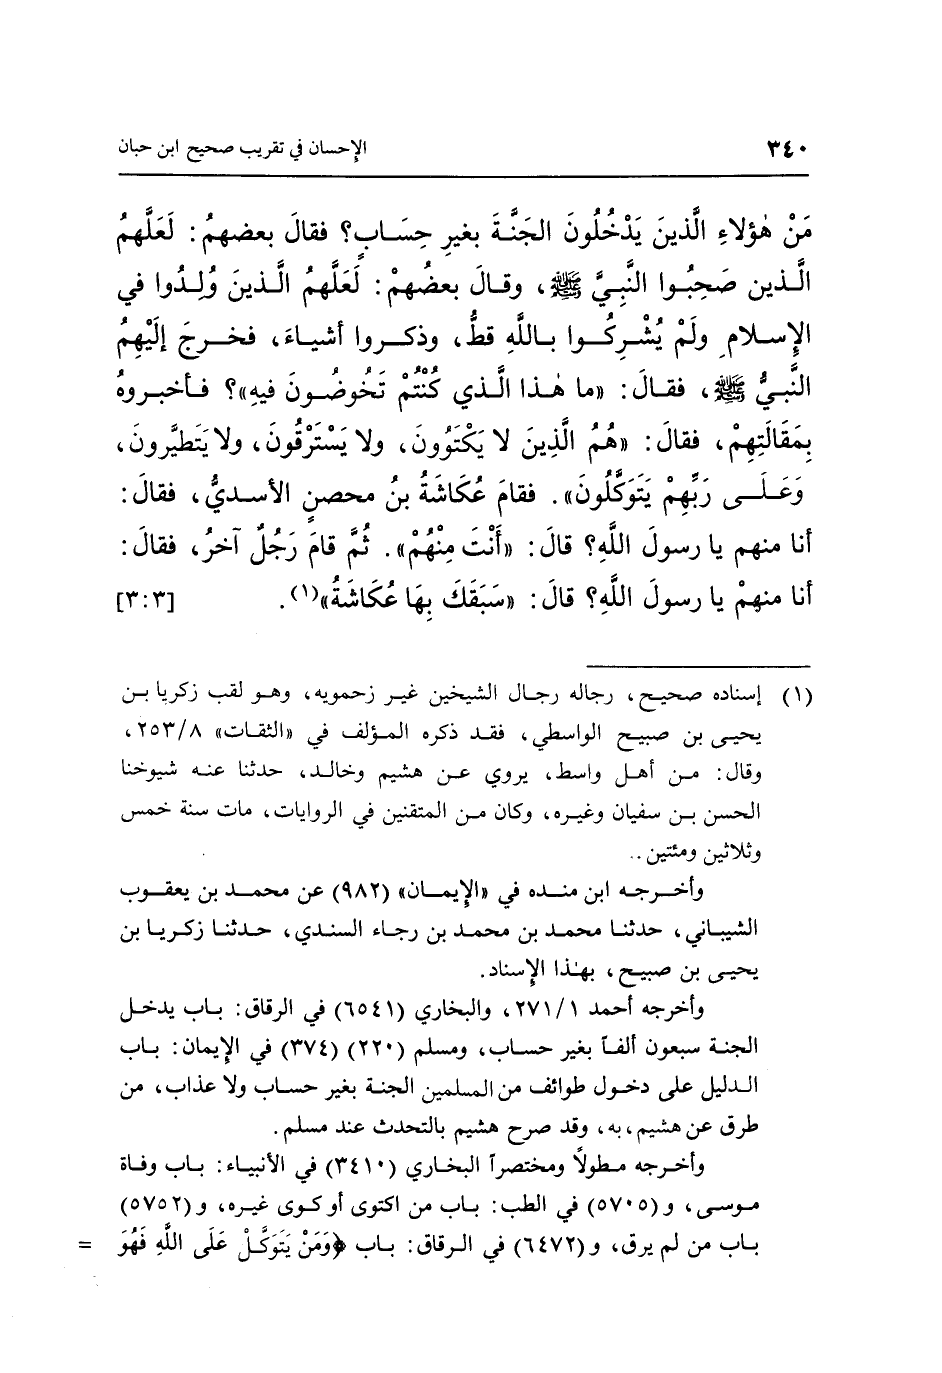 ٣٤٠ الإحسان في تقريب صحيح ابن حبان
مَنْ هٰؤلاءِ الَّذينَ يَدْخُلُونَ الجَنَّةَ بغيرِ حِسَابٍ؟ فقالَ بعضهمُ: لَعَلَّهمُ
الَّذين صَحِبُوا النَّبِيَّ ﷺ، وقالَ بعضُهمْ: لَعَلَّهمُ الَّذينَ وُلِدُوا في
الإِسلامِ ولَمْ يُشْرِكُوا باللَّهِ قطُّ، وذكروا أشياءَ، فخرجَ إلَيْهِمُ
النَّبيُّ ﷺ، فقالَ: «ما هٰذا الَّذي كُنْتُمْ تَخُوضُونَ فيهِ»؟ فأخبروهُ
بِمَقَالَتِهِمْ، فقالَ: «هُمُ الَّذِينَ لا يَكْتَوُونَ، ولا يَسْتَرْقُونَ، ولا يَتَطَيَّرونَ،
وَعَلَى رَبِّهِمْ يَتَوَكَّلُونَ». فقامَ عُكَاشَةُ بنُ محصنٍ الأسديُّ، فقالَ:
أنا منهم يا رسولَ اللَّهِ؟ قالَ: «أَنْتَ مِنْهُمْ». ثُمَّ قامَ رَجُلٌ آخرُ، فقالَ:
أنا منهمْ يا رسولَ اللَّهِ؟ قالَ: «سَبَقَكَ بِهَا عُكَاشَةُ»(١). [٣:٣]
(١) إسناده صحيح، رجاله رجال الشيخين غير زحمويه، وهو لقب زكريا بن
يحيى بن صبيح الواسطي، فقد ذكره المؤلف في «الثقات» ٢٥٣/٨،
وقال: من أهل واسط، يروي عن هشيم وخالد، حدثنا عنه شيوخنا
الحسن بن سفيان وغيره، وكان من المتقنين في الروايات، مات سنة خمس
وثلاثين ومئتين..
وأخرجه ابن منده في «الإيمان» (٩٨٢) عن محمد بن يعقوب
الشيباني، حدثنا محمد بن محمد بن رجاء السندي، حدثنا زكريا بن
يحيى بن صبيح، بهٰذا الإسناد.
وأخرجه أحمد ٢٧١/١، والبخاري (٦٥٤١) في الرقاق: باب يدخل
الجنة سبعون ألفاً بغير حساب، ومسلم (٢٢٠) (٣٧٤) في الإيمان: باب
الدليل على دخول طوائف من المسلمين الجنة بغير حساب ولا عذاب، من
طرق عن هشيم، به، وقد صرح هشيم بالتحدث عند مسلم.
وأخرجه مطولاً ومختصراً البخاري (٣٤١٠) في الأنبياء: باب وفاة
موسى، و(٥٧٠٥) في الطب: باب من اكتوى أو كوى غيره، و(٥٧٥٢)
باب من لم يرق، و(٦٤٧٢) في الرقاق: باب ﴿وَمَنْ يَتَوَكَّلْ عَلَى اللَّهِ فَهُوَ =